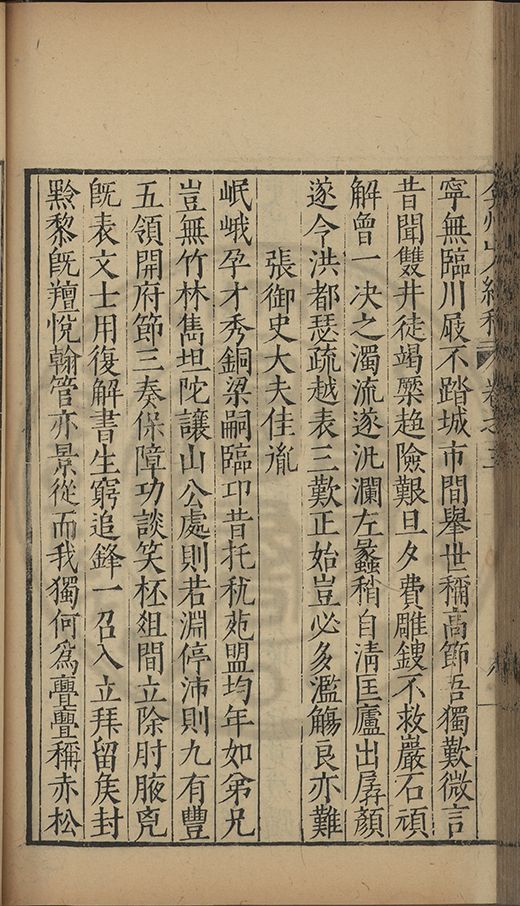 寧無臨川屐不踏城市間舉世稱高節吾獨歎微言
昔聞雙井徒竭蹷趋險艱旦夕費雕鎪不救巖石頑
解曾一决之濁流遂沘瀾左蠡稍自清匡廬出孱顏
遂令洪都瑟疏越表三歎正始豈必多濫觴良亦難
張御史大夫佳胤
岷峨孕才秀銅梁嗣臨卭昔托秇苑盟均年如弟兄
豈無竹林雋坦陀讓山公處則若淵停沛則九有豐
五領開府節三奏保障功談笑柸爼間立除肘腋兇
旣表文士用復解書生窮追鋒一召入立拜留矦封
黔黎旣羶悅翰管亦景從而我獨何爲亹亹稱赤松